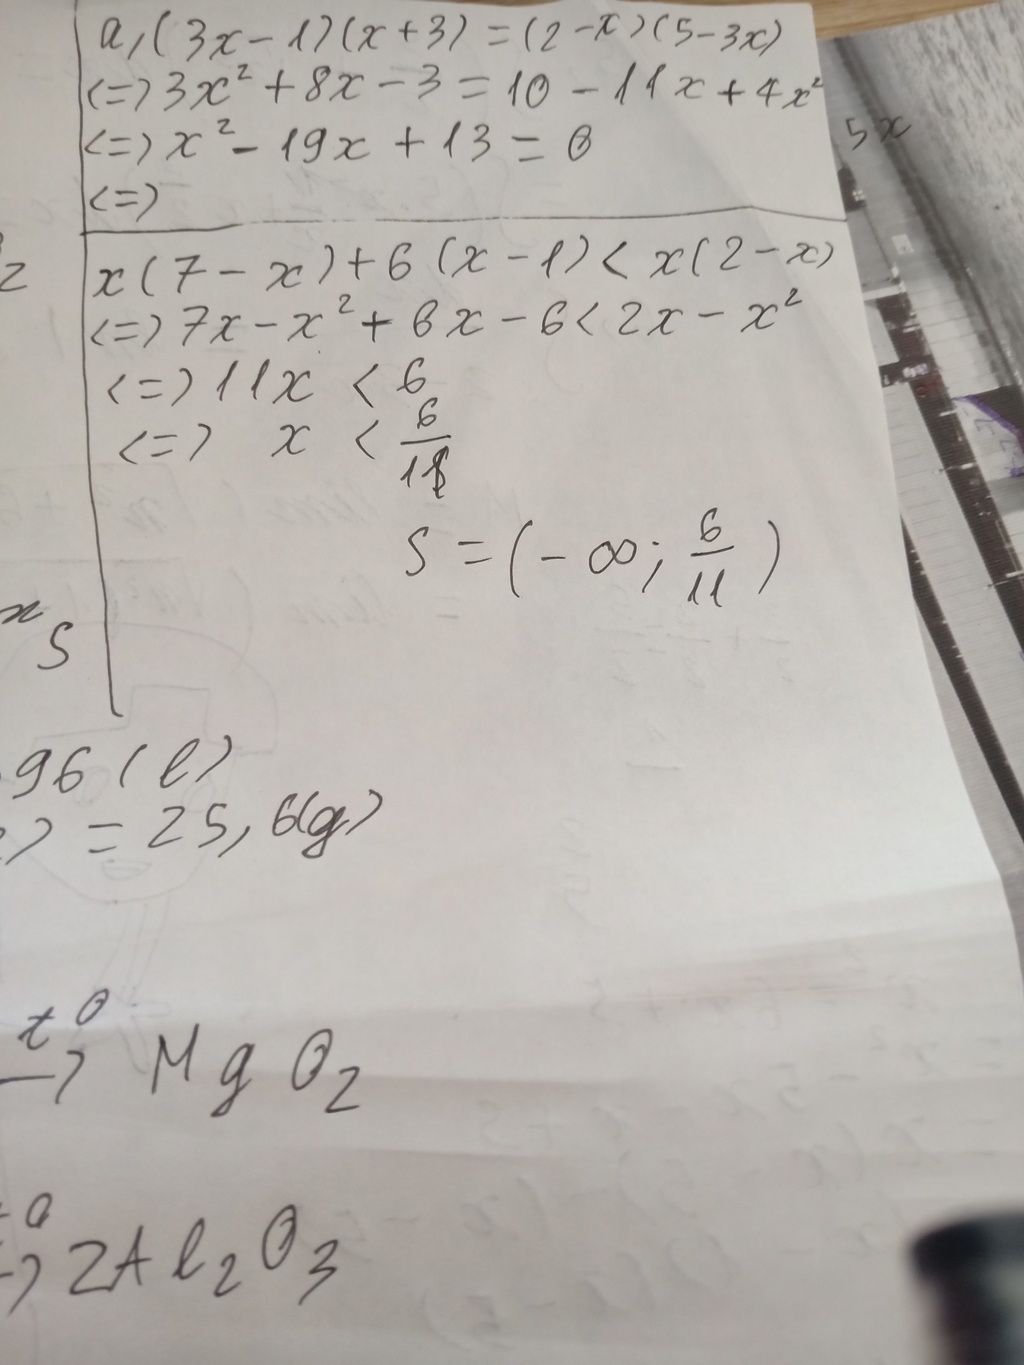 a, (3x - 1)(x + 3) = (2 - x)(5 - 3x)
<=> 3x² + 8x - 3 = 10 - 11x + 4x²
<=> x² - 19x + 13 = 0
<=>
5x
2
x(7 - x) + 6(x - 1) < x(2 - x)
<=> 7x - x² + 6x - 6 < 2x - x²
<=> 11x < 6
<=> x < 6/11
S = (-∞; 6/11)
x
S
96 (l)
) = 25,6(g)
t⁰
→ MgO₂
⁰
→ 2Al₂O₃